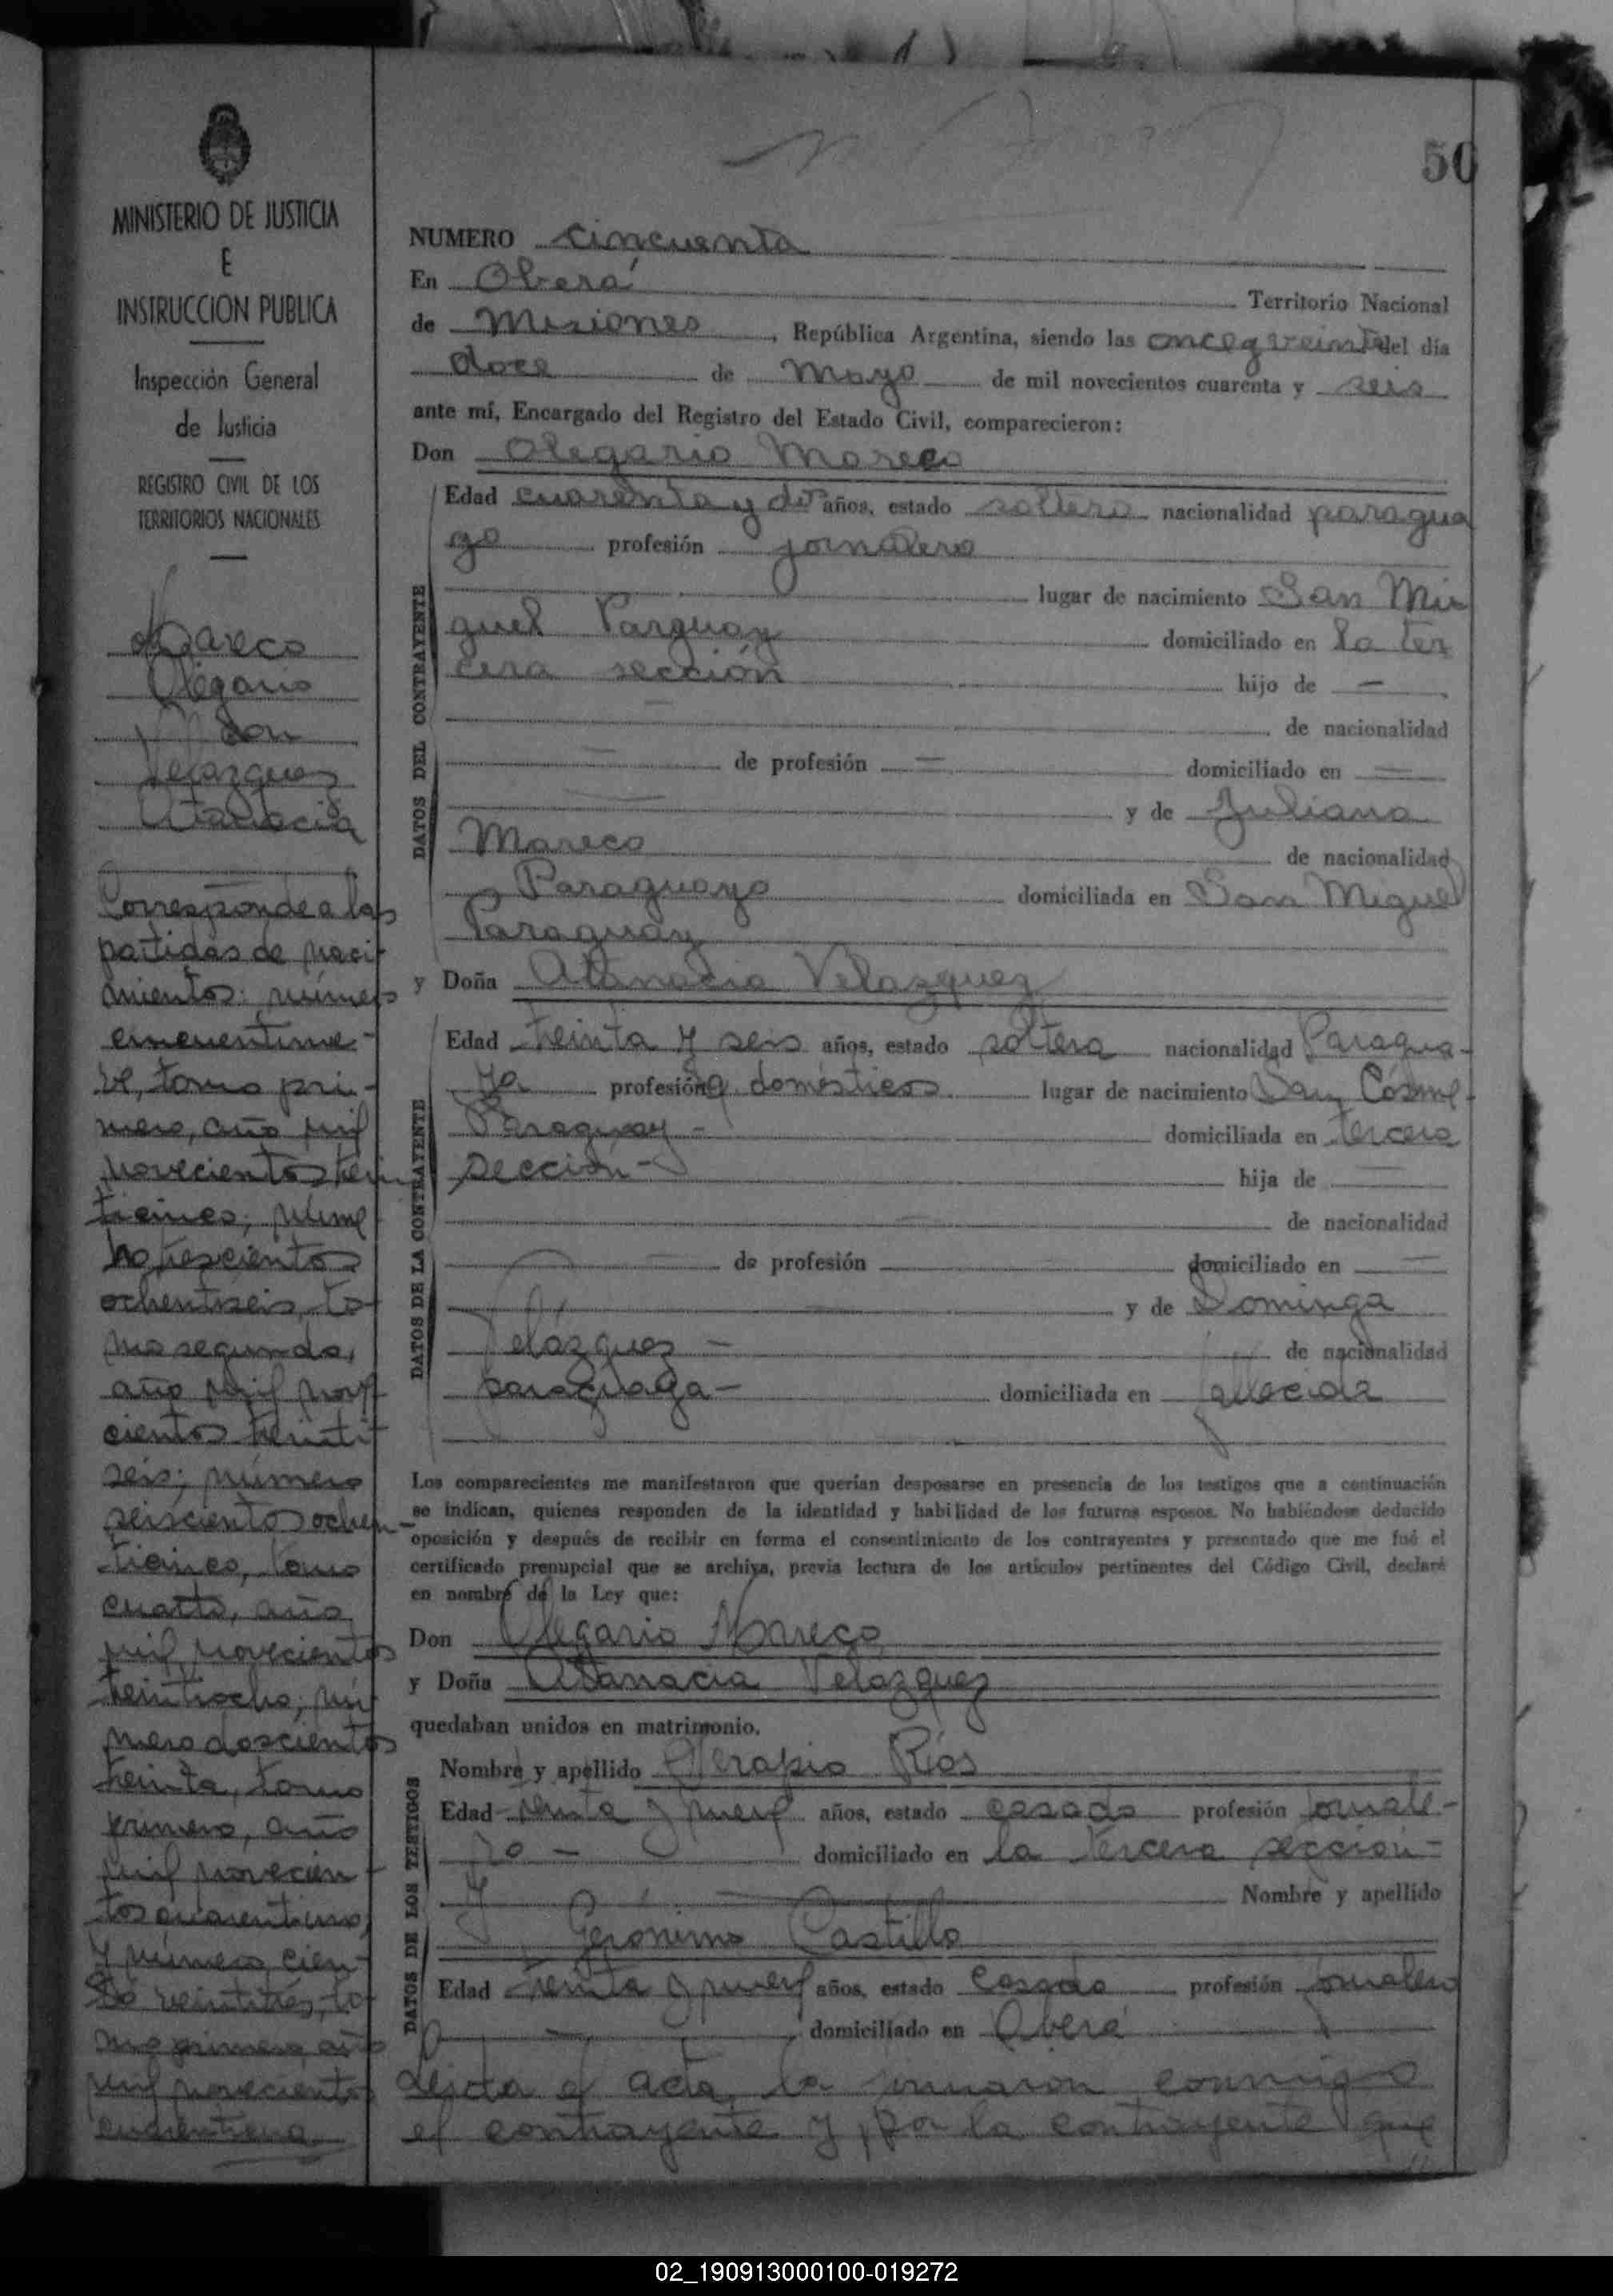 50
MINISTERIO DE JUSTICIA
E
INSTRUCCION PUBLICA
Inspección General
de Justicia
REGISTRO CIVIL DE LOS
TERRITORIOS NACIONALES
Mareco
Olegario
con
Velazquez
Atanacia
Corresponde a las
partidas de naci-
mientos: número
cincuentinue-
ve, tomo pri-
mero, año mil
novecientos trein
ticinco; núme
ro trescientos
ochentiseis, to-
mo segundo,
año mil nove
cientos treinti
seis; número
seiscientos ochen-
ticinco, tomo
cuarto, año
mil novecientos
treintiocho; nú-
mero doscientos
treinta, tomo
primero, año
mil novecien-
tos cuarentiuno,
y número cien-
to veintitrés, to-
mo primero, año
mil novecientos
NUMERO cincuenta
En Oberá Territorio Nacional
de Misiones, República Argentina, siendo las once y veinte del día
doce de Mayo de mil novecientos cuarenta y seis
ante mí, Encargado del Registro del Estado Civil, comparecieron:
Don Olegario Mareco
DATOS DEL CONTRAYENTE
Edad cuarenta y dos años, estado soltero nacionalidad paragua
yo profesión jornalero
lugar de nacimiento San Mi
guel Parguay domiciliado en la ter
cera sección hijo de —
de nacionalidad
— de profesión — domiciliado en —
— y de Juliana
Mareco de nacionalidad
Paraguayo domiciliada en San Miguel
Paraguay
y Doña Atanacia Velazquez
DATOS DE LA CONTRAYENTE
Edad treinta y seis años, estado soltera nacionalidad Paragua-
ya profesión q. domésticos lugar de nacimiento San Cósme-
Paraguay- domiciliada en tercera
sección- hija de —
— de nacionalidad
— de profesión domiciliado en —
— y de Dominga
Velázquez — de nacionalidad
paraguaya- domiciliada en fallecida
Los comparecientes me manifestaron que querían desposarse en presencia de los testigos que a continuación
se indican, quienes responden de la identidad y habilidad de los futuros esposos. No habiéndose deducido
oposición y después de recibir en forma el consentimiento de los contrayentes y presentado que me fué el
certificado prenupcial que se archiva, previa lectura de los artículos pertinentes del Código Civil, declaré
en nombre de la Ley que:
Don Olegario Mareco
y Doña Atanacia Velazquez
quedaban unidos en matrimonio.
DATOS DE LOS TESTIGOS
Nombre y apellido Serapio Ríos
Edad treinta y nueve años, estado casado profesión jornale-
ro - domiciliado en la tercera sección-
y — Nombre y apellido
Gerónimo Castillo
Edad treinta y nueve años, estado casado profesión jornalero
— domiciliado en Oberá
Leída el acta, la firmaron conmigo
el contrayente y por la contrayente que
02_190913000100-019272